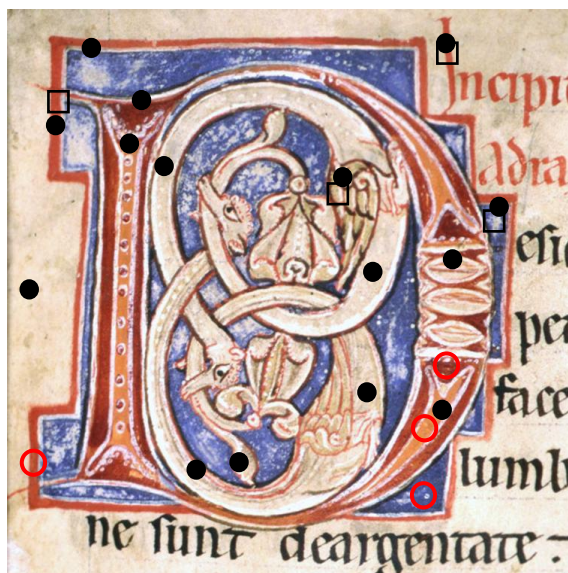 Incipi
Adra
Desid
pe
face
lumb
ne sunt deargentate.